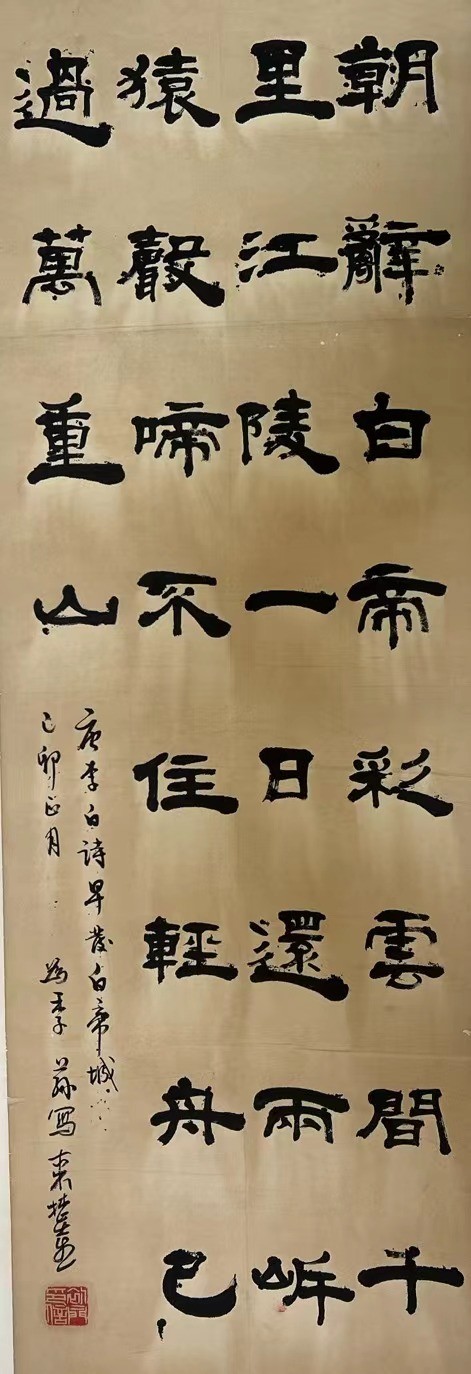 朝辭白帝彩雲間千
里江陵一日還兩岸
猿聲啼不住輕舟已
過萬重山
唐李白詩早發白帝城
己卯正月 寫